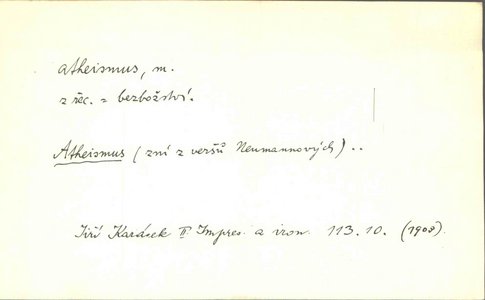 atheismus, m.
z řec. = bezbožství.
Atheismus (zní z veršů Neumannových) ..
Jiří Karásek II. Impres. a iron. 113.10. (1903).